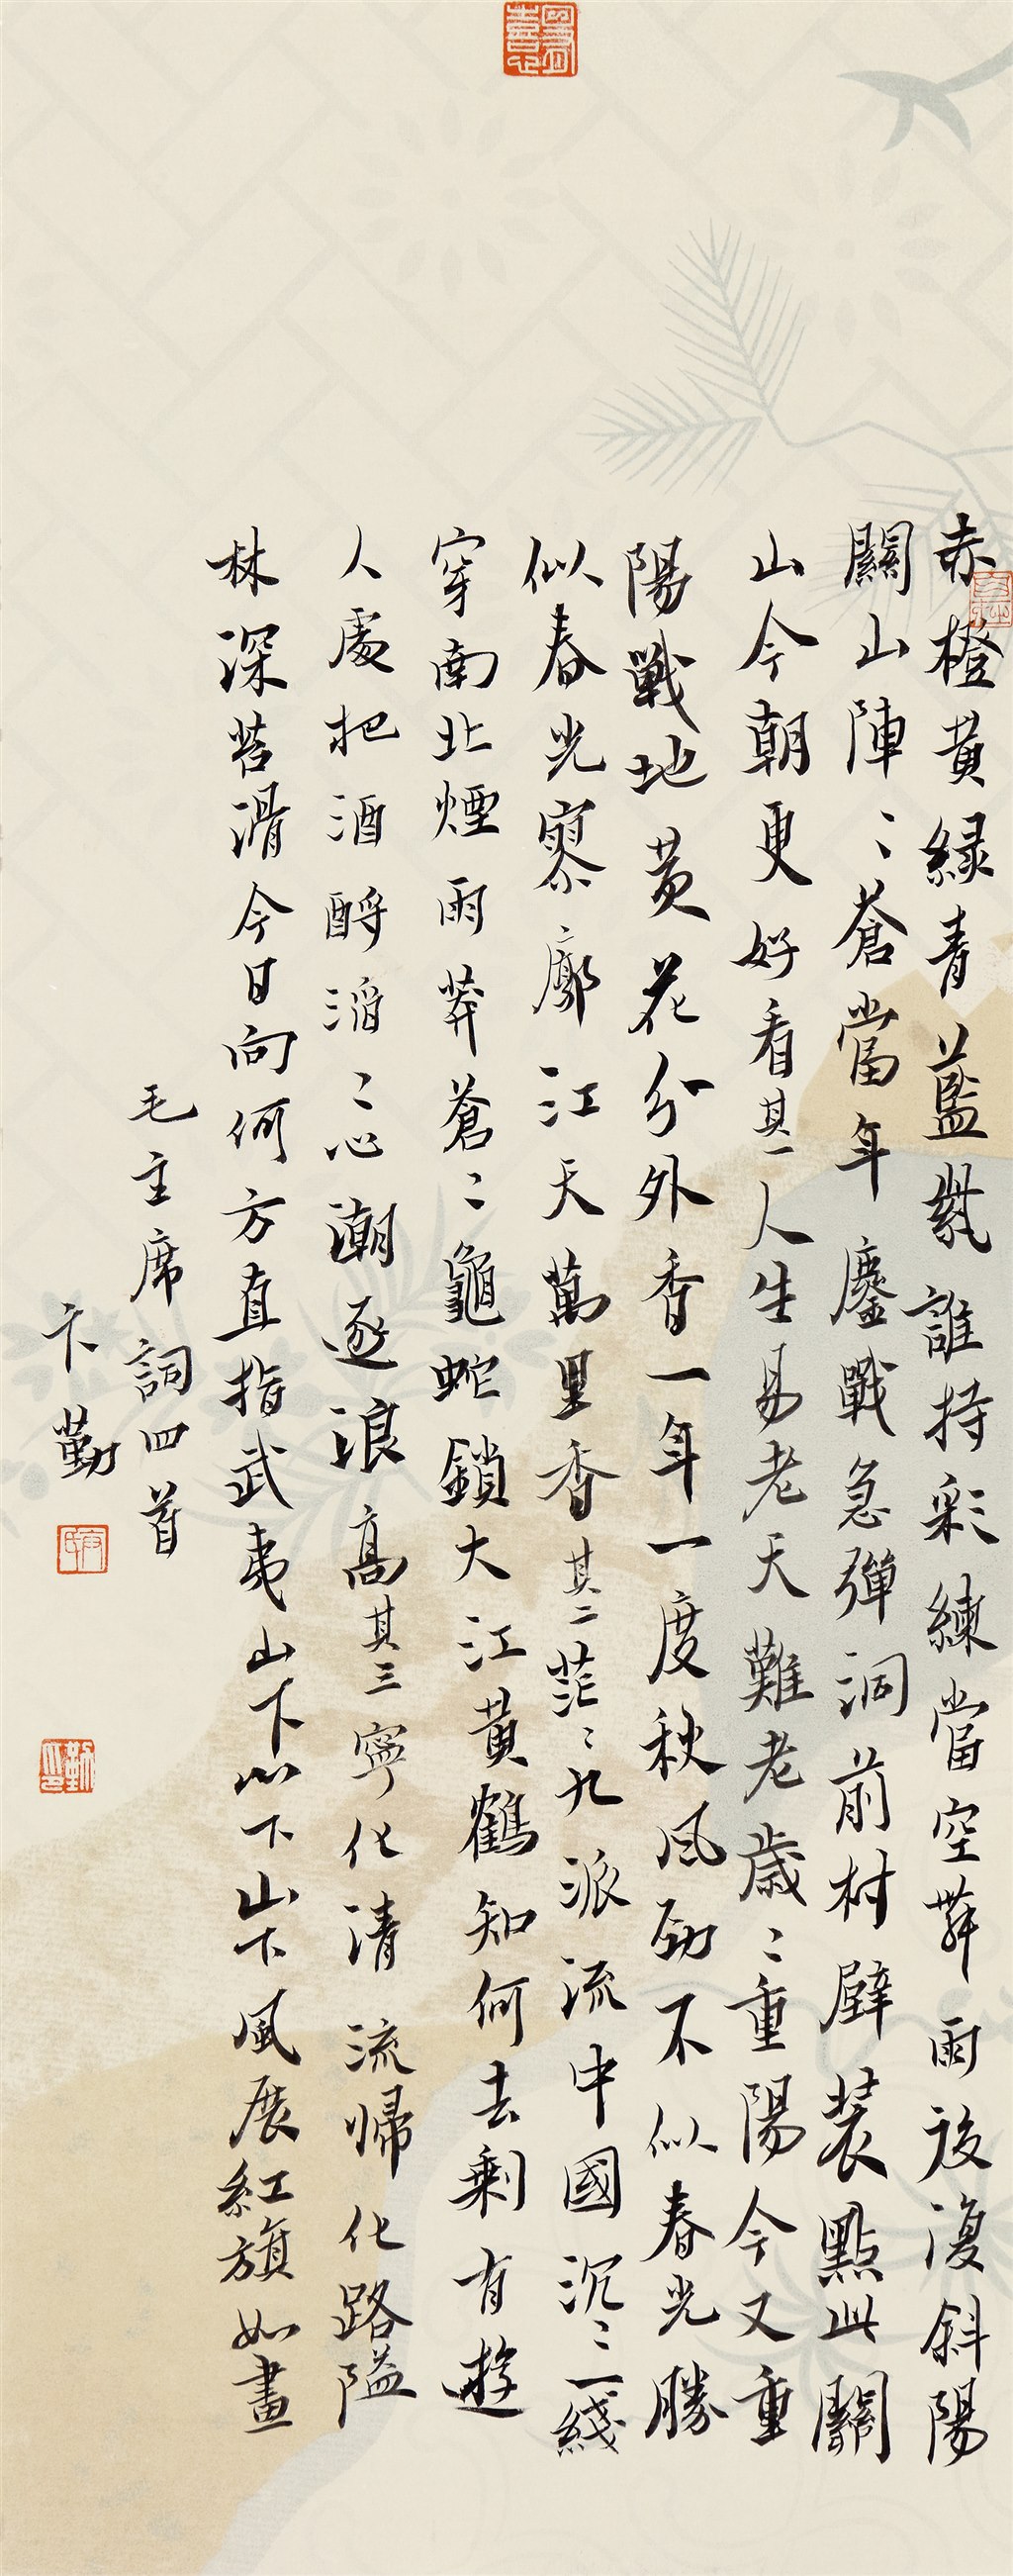 赤橙黄緑青藍紫誰持彩練當空舞雨後復斜陽
關山陣〻蒼當年鏖戰急彈洞前村壁裝點此關
山今朝更好看其一人生易老天難老歲〻重陽今又重
陽戰地黄花分外香一年一度秋風勁不似春光勝
似春光寥廓江天萬里香其二茫〻九派流中國沉〻一綫
穿南北煙雨莽蒼〻龜蛇鎖大江黄鶴知何去剩有遊
人處把酒酹滔〻心潮逐浪高其三寧化清流歸化路隘
林深苔滑今日向何方直指武夷山下山下山下風展紅旗如畫
毛主席詞四首
卞勤